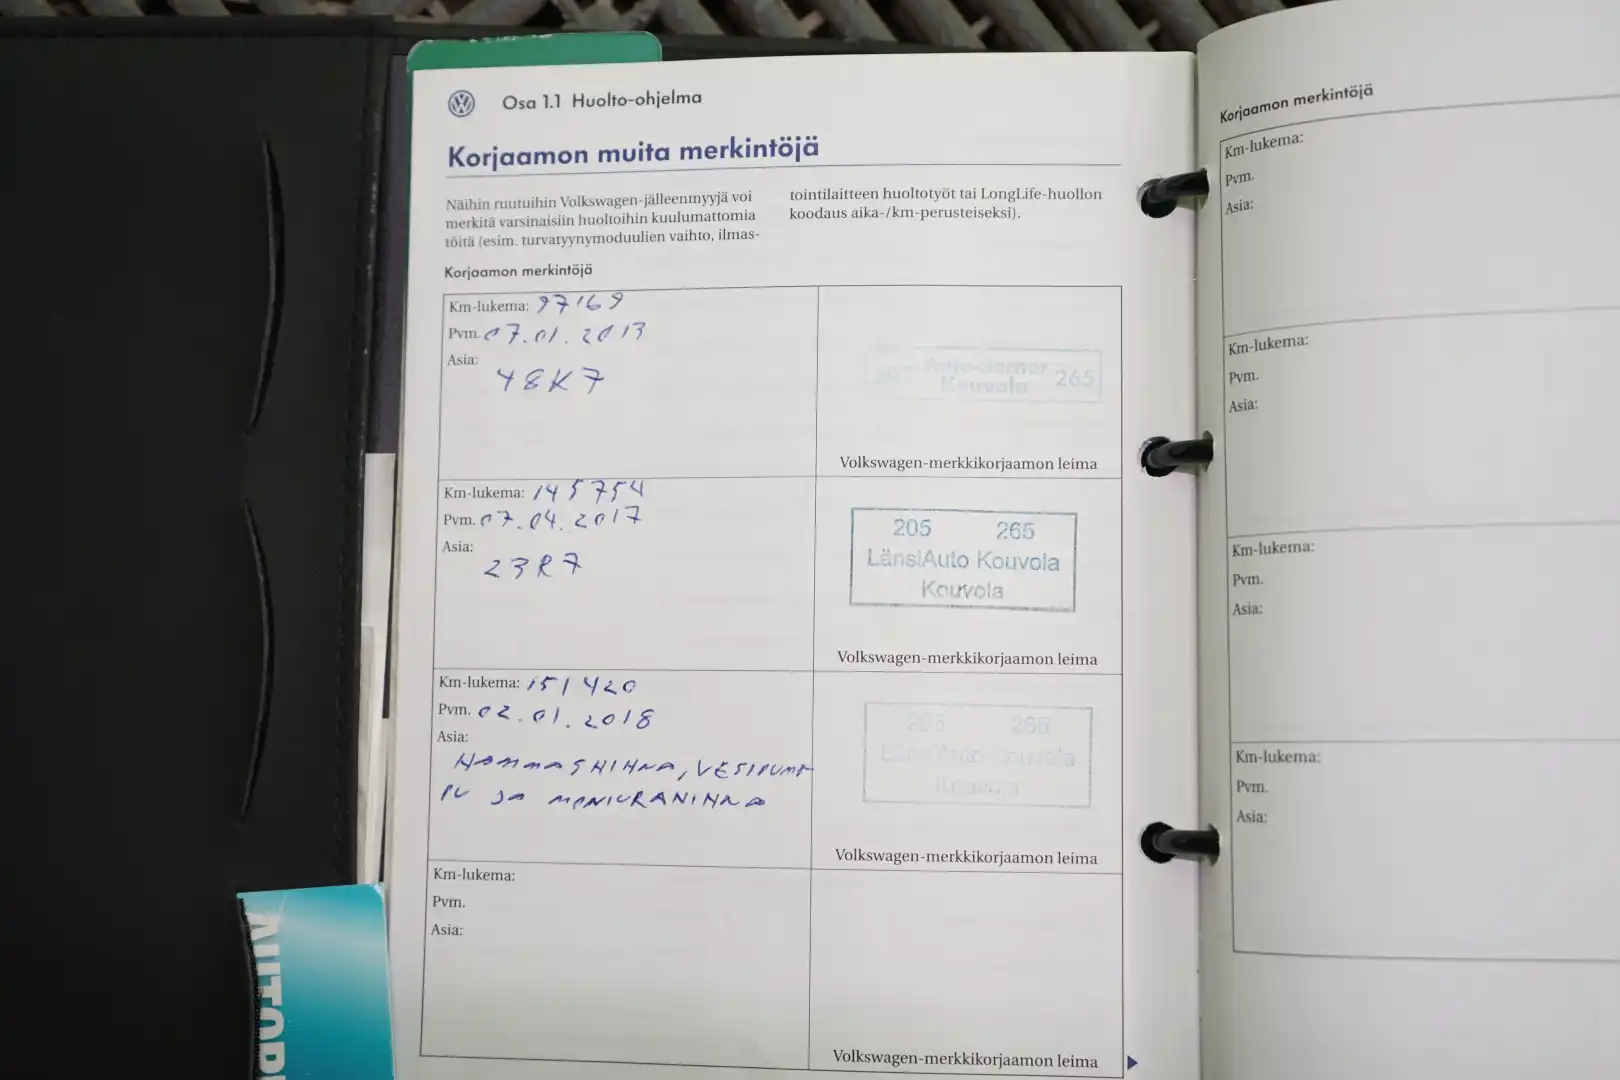 Osa 1.1 Huolto-ohjelma
Korjaamon muita merkintöjä
Näihin ruutuihin Volkswagen-jälleenmyyjä voi
merkitä varsinaisiin huoltoihin kuulumattomia
töitä (esim. turvatyynymoduulien vaihto, ilmas-
tointilaitteen huoltotyöt tai LongLife-huollon
koodaus aika-/km-perusteiseksi).
Korjaamon merkintöjä
Km-lukema: 97169
Pvm. 07.01.2013
Asia:
48K7
Kouvola 265
Volkswagen-merkkikorjaamon leima
Km-lukema: 145754
Pvm. 07.04.2017
Asia:
23R7
205 265
LänsiAuto Kouvola
Kouvola
Volkswagen-merkkikorjaamon leima
Km-lukema: 151420
Pvm. 02.01.2018
Asia:
HAMMASHIHNA, VESIPUMP
PU JA MONIURAHIHNA
205 265
LänsiAuto Kouvola
Kouvola
Volkswagen-merkkikorjaamon leima
Km-lukema:
Pvm.
Asia:
Volkswagen-merkkikorjaamon leima
Korjaamon merkintöjä
Km-lukema:
Pvm.
Asia:
Km-lukema:
Pvm.
Asia:
Km-lukema:
Pvm.
Asia:
Km-lukema:
Pvm.
Asia: